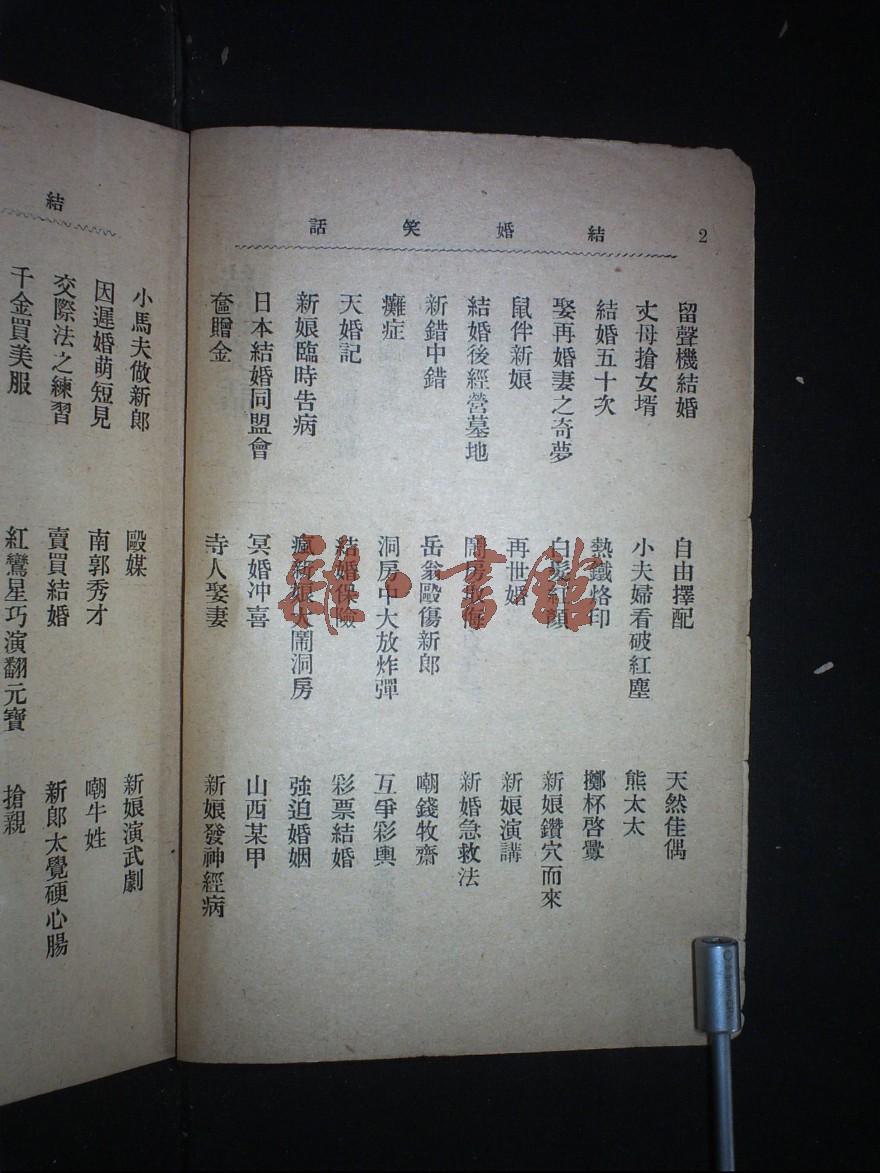 2
結婚笑話
留聲機結婚 自由擇配 天然佳偶
丈母搶女壻 小夫婦看破紅塵 熊太太
結婚五十次 熱鐵烙印 擲杯啓釁
娶再婚妻之奇夢 白髮紅顏 新娘鑽穴而來
鼠伴新娘 再世婚 新娘演講
結婚後經營墓地 鬧房 新婚急救法
新錯中錯 岳翁毆傷新郎 嘲錢牧齋
癱症 洞房中大放炸彈 互爭彩輿
天婚記 結婚保險 彩票結婚
新娘臨時告病 瘋新娘大鬧洞房 強迫婚姻
日本結婚同盟會 冥婚冲喜 山西某甲
奩贈金 寺人娶妻 新娘發神經病
結
小馬夫做新郎 毆媒 新娘演武劇
因遲婚萌短見 南郭秀才 嘲牛姓
交際法之練習 賣買結婚 新郎太覺硬心腸
千金買美服 紅鸞星巧演翻元寶 搶親
雜·書館